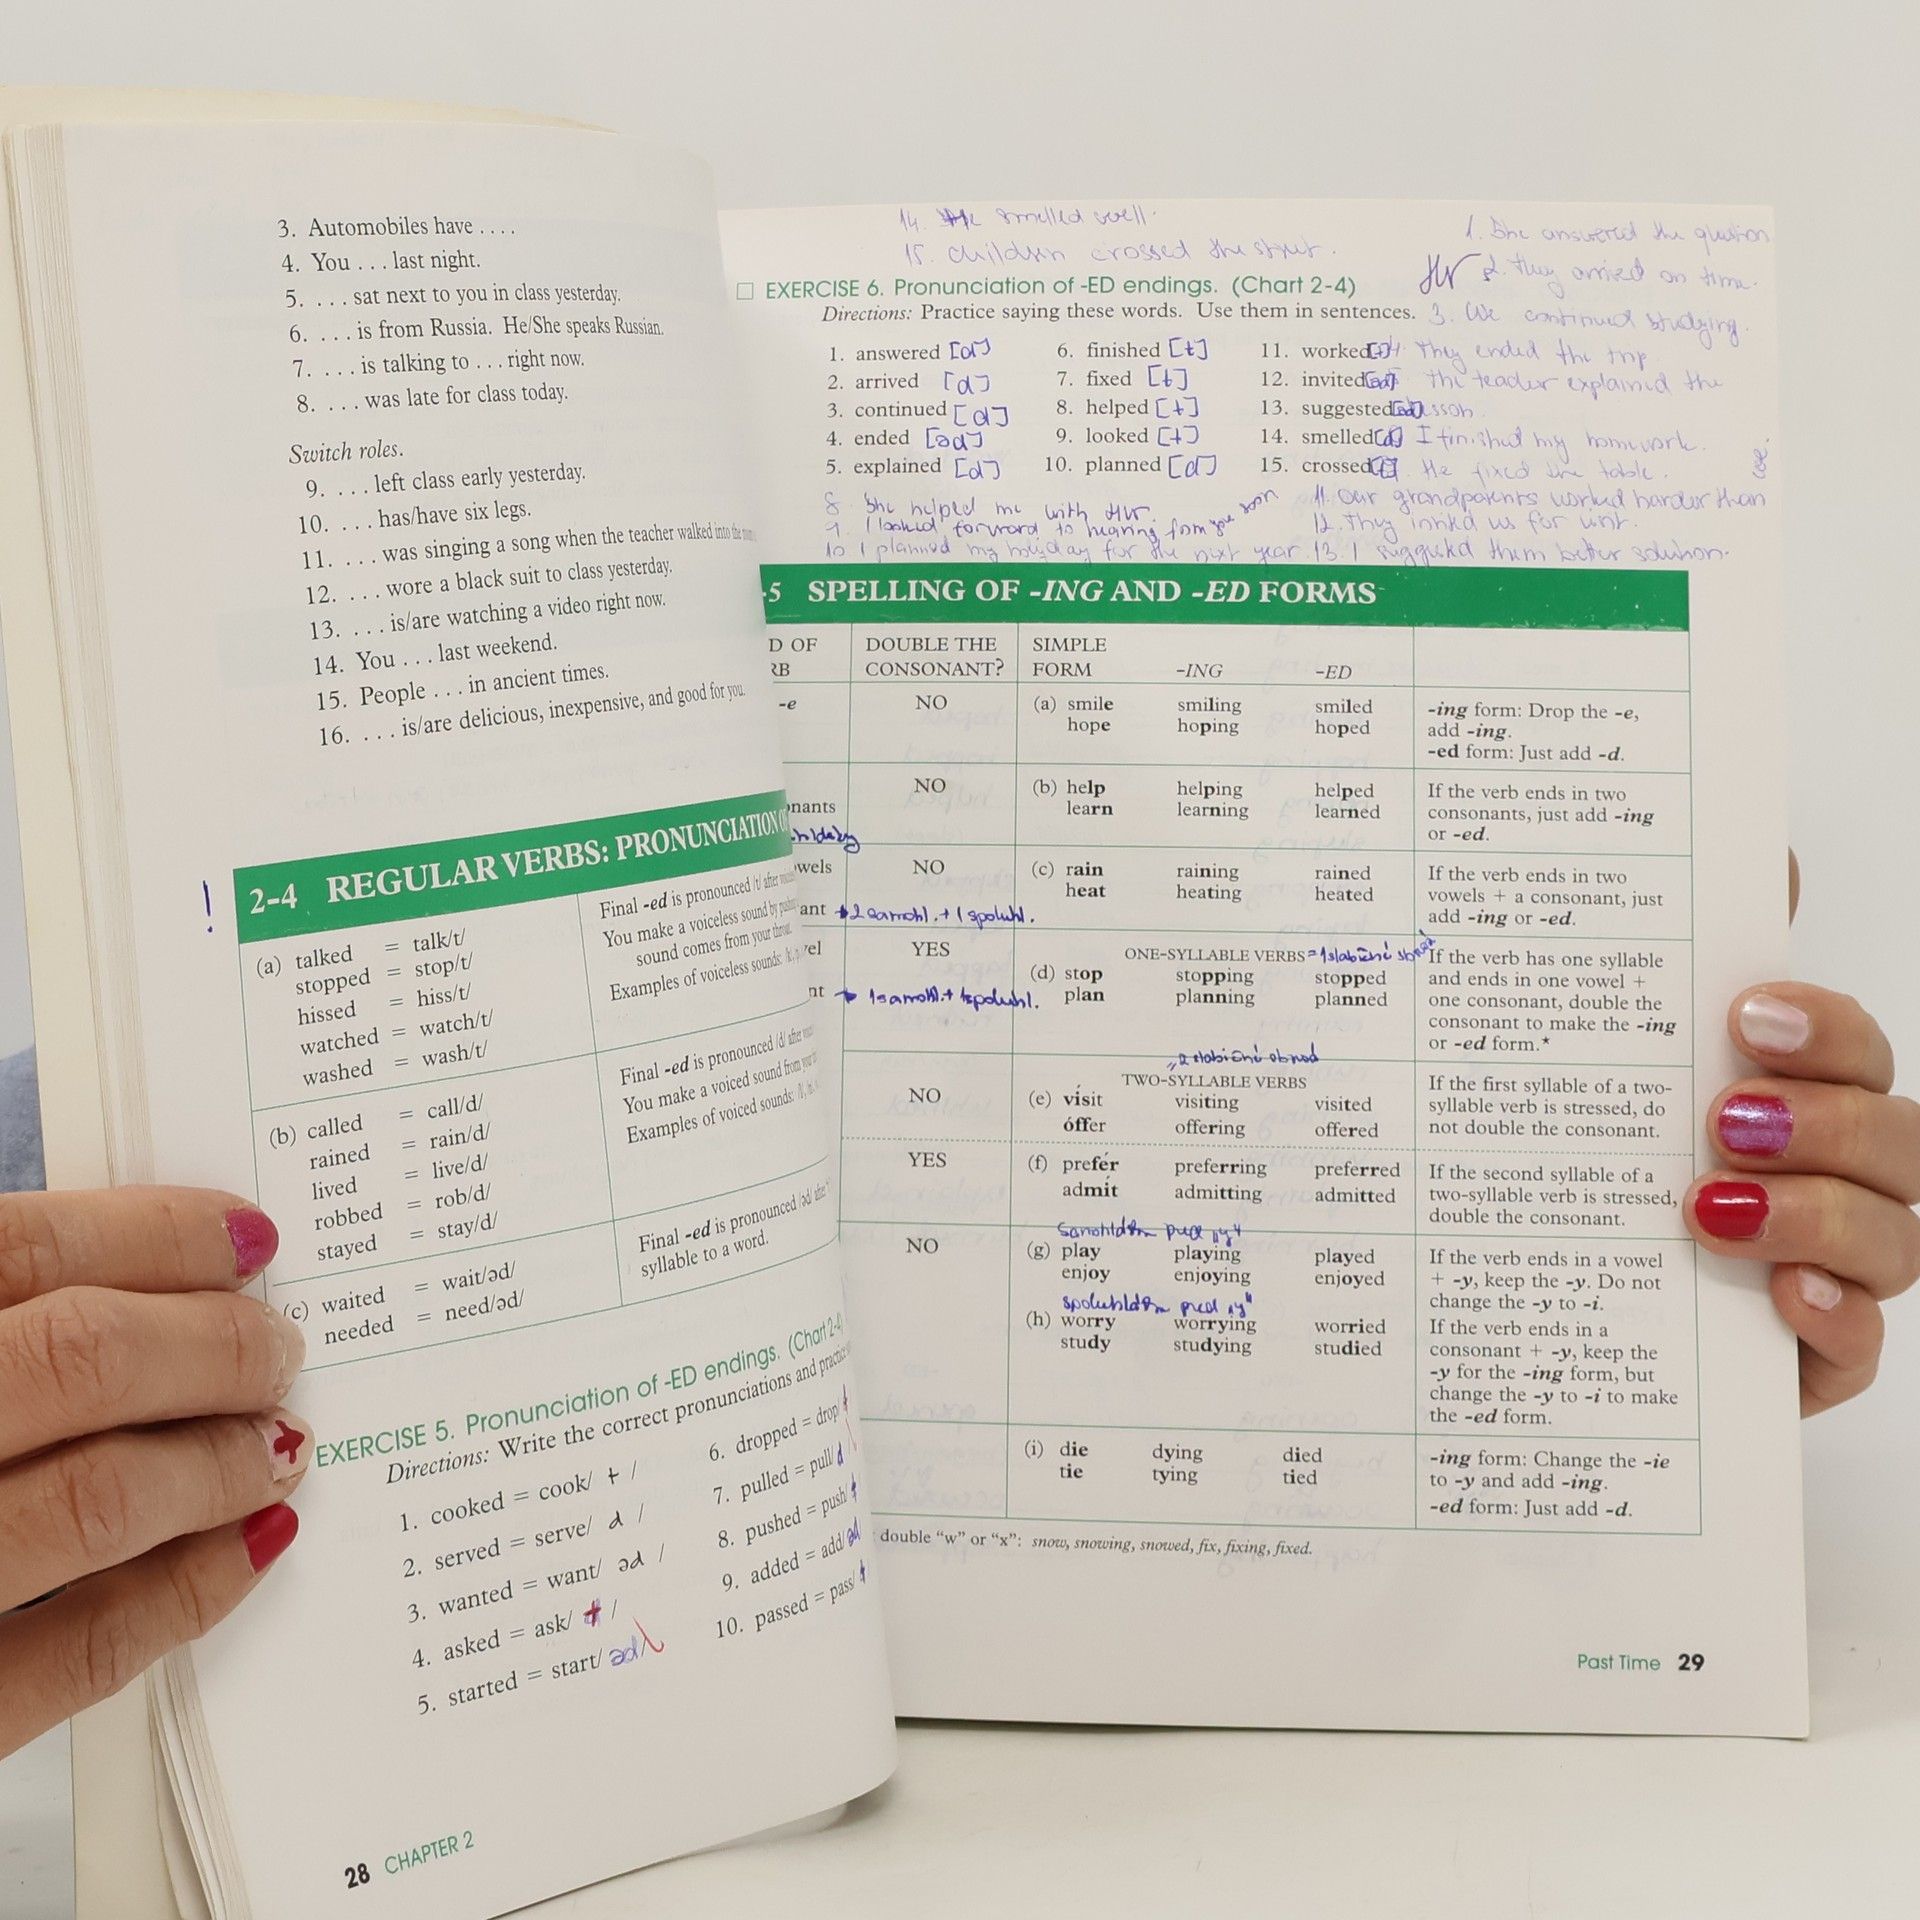 3. Automobiles have . . . .
4. You . . . last night.
5. . . . sat next to you in class yesterday.
6. . . . is from Russia. He/She speaks Russian.
7. . . . is talking to . . . right now.
8. . . . was late for class today.
Switch roles.
9. . . . left class early yesterday.
10. . . . has/have six legs.
11. . . . was singing a song when the teacher walked into the
12. . . . wore a black suit to class yesterday.
13. . . . is/are watching a video right now.
14. You . . . last weekend.
15. People . . . in ancient times.
16. . . . is/are delicious, inexpensive, and good for you.
! 2-4 REGULAR VERBS: PRONUNCIATION
(a) talked = talk/t/
stopped = stop/t/
hissed = hiss/t/
watched = watch/t/
washed = wash/t/
Final -ed is pronounced /t/ after
You make a voiceless sound by
sound comes from your throat.
Examples of voiceless sounds:
(b) called = call/d/
rained = rain/d/
lived = live/d/
robbed = rob/d/
stayed = stay/d/
Final -ed is pronounced /d/ after
You make a voiced sound from your
Examples of voiced sounds:
(c) waited = wait/əd/
needed = need/əd/
Final -ed is pronounced /əd/ after
syllable to a word.
EXERCISE 5. Pronunciation of -ED endings. (Chart 2-4)
Directions: Write the correct pronunciations and practice
1. cooked = cook/ t /
2. served = serve/ d /
3. wanted = want/ əd /
4. asked = ask/ t /
5. started = start/ əd /
6. dropped = drop/ t
7. pulled = pull/ d
8. pushed = push/ t
9. added = add/ əd
10. passed = pass/ t
28 CHAPTER 2
14. smelled well.
15. Children crossed the street.
1. She answered the question
HW 2. They arrived on time.
EXERCISE 6. Pronunciation of -ED endings. (Chart 2-4)
Directions: Practice saying these words. Use them in sentences.
3. We continued studying.
1. answered [d]
2. arrived [d]
3. continued [d]
4. ended [əd]
5. explained [d]
6. finished [t]
7. fixed [t]
8. helped [t]
9. looked [t]
10. planned [d]
11. worked [t]
12. invited [əd]
13. suggested [əd]
14. smelled [d]
15. crossed [t]
4. They ended the trip.
The teacher explained the
lesson.
I finished my homework.
He fixed the table.
8. She helped me with HW.
9. I looked forward to hearing from you soon
10. I planned my holiday for the next year.
11. Our grandparents worked harder than
12. They invited us for
13. I suggested them better solution.
-5 SPELLING OF -ING AND -ED FORMS
D OF
RB
DOUBLE THE
CONSONANT?
SIMPLE
FORM -ING -ED
-e NO (a) smile smiling smiled
hope hoping hoped
-ing form: Drop the -e,
add -ing.
-ed form: Just add -d.
nants NO (b) help helping helped
learn learning learned
If the verb ends in two
consonants, just add -ing
or -ed.
wels NO (c) rain raining rained
heat heating heated
ant → 2 samohl. + 1 spoluhl.
If the verb ends in two
vowels + a consonant, just
add -ing or -ed.
YES ONE-SYLLABLE VERBS = 1slabičné
vel (d) stop stopping stopped
nt → 1samohl. + 1spoluhl. plan planning planned
If the verb has one syllable
and ends in one vowel +
one consonant, double the
consonant to make the -ing
or -ed form.*
TWO-SYLLABLE VERBS
NO (e) vísit visiting visited
óffer offering offered
If the first syllable of a two-
syllable verb is stressed, do
not double the consonant.
YES (f) prefér preferring preferred
admít admitting admitted
If the second syllable of a
two-syllable verb is stressed,
double the consonant.
NO (g) play playing played
enjoy enjoying enjoyed
If the verb ends in a vowel
+ -y, keep the -y. Do not
change the -y to -i.
(h) worry worrying worried
study studying studied
If the verb ends in a
consonant + -y, keep the
-y for the -ing form, but
change the -y to -i to make
the -ed form.
(i) die dying died
tie tying tied
-ing form: Change the -ie
to -y and add -ing.
-ed form: Just add -d.
double “w” or “x”: snow, snowing, snowed, fix, fixing, fixed.
Past Time 29